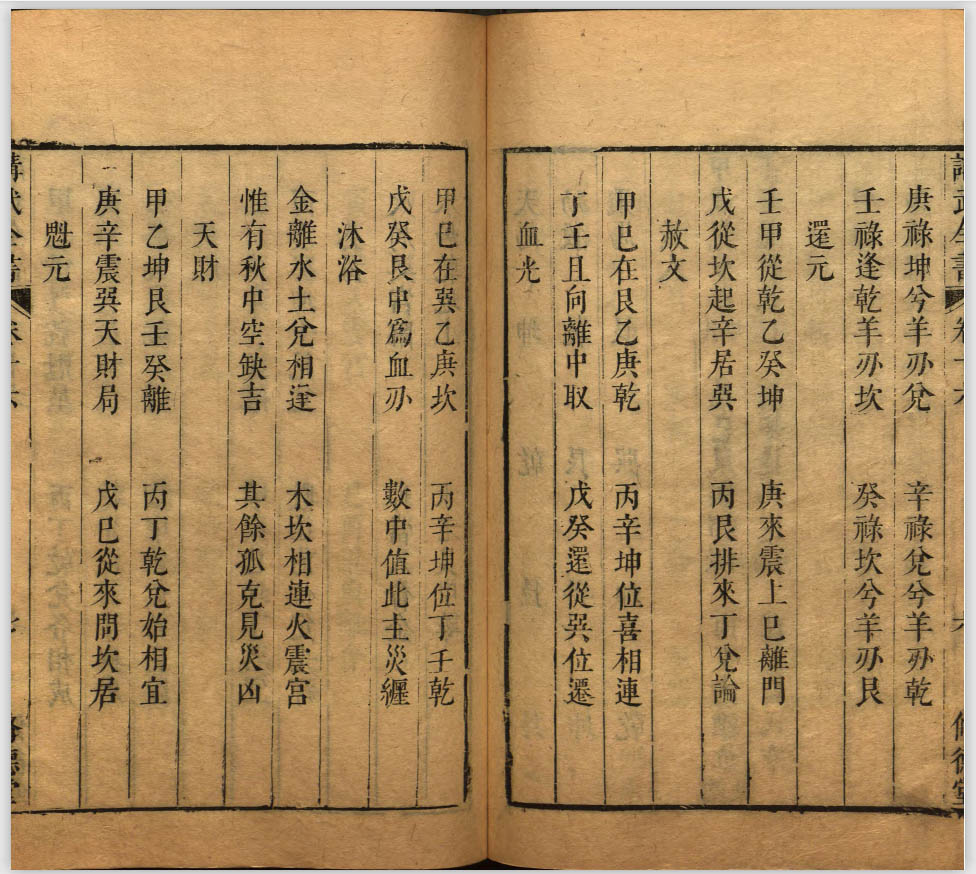 講武全書 卷十六 六 修德堂
庚祿坤兮羊刃兌 辛祿兌兮羊刃乾
壬祿逢乾羊刃坎 癸祿坎兮羊刃艮
還元
壬甲從乾乙癸坤 庚來震上巳離門
戊從坎起辛居巽 丙艮排來丁兌論
赦文
甲巳在艮乙庚乾 丙辛坤位喜相連
丁壬且向離中取 戊癸還從巽位遷
血光
甲巳在巽乙庚坎 丙辛坤位丁壬乾
戊癸艮中爲血刃 數中值此主災纏
沐浴
金離水土兌相逢 木坎相連火震宫
惟有秋中空缺吉 其餘孤克見災凶
天財
甲乙坤艮壬癸離 丙丁乾兌始相宜
庚辛震巽天財局 戊巳從來問坎居
魁元
講武全書 卷十六 七 修德堂